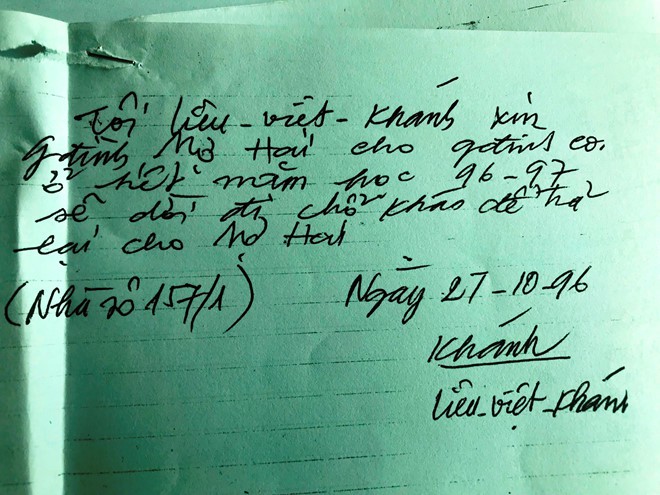 Tôi liễu-việt-Khánh xin
gđình Mợ Hai cho gđình co.
ở hết năm học 96-97
sẽ dời đi chỗ khác để trả
lại cho Mợ Hai
(Nhà số 157/1) Ngày 27-10-96
Khánh
liễu-việt-Khánh